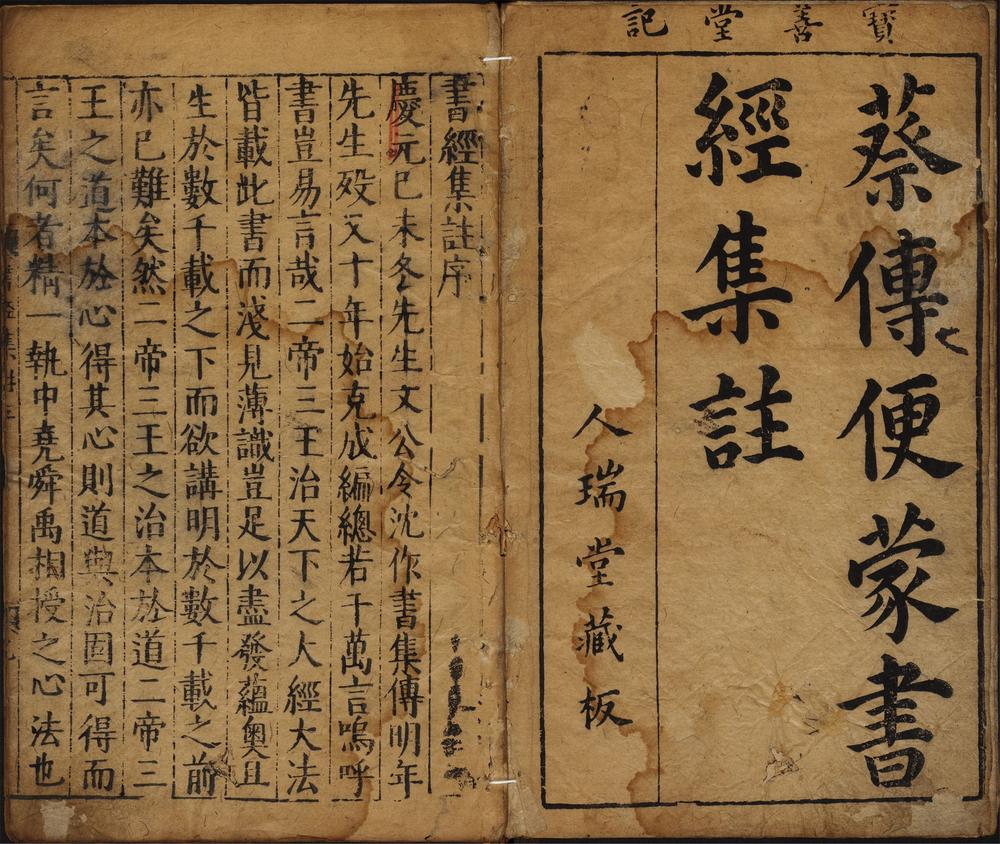 寶善堂記
蔡傳便蒙書
經集註
人瑞堂藏板
書經集註序
慶元已未冬先生文公令沈作書集傳明年
先生歿又十年始克成編總若干萬言嗚呼
書豈易言哉二帝三王治天下之大經大法
皆載此書而淺見薄識豈足以盡發蘊奧且
生於數千載之下而欲講明於數千載之前
亦已難矣然二帝三王之治本於道二帝三
王之道本於心得其心則道與治固可得而
言矣何者精一執中堯舜禹相授之心法也